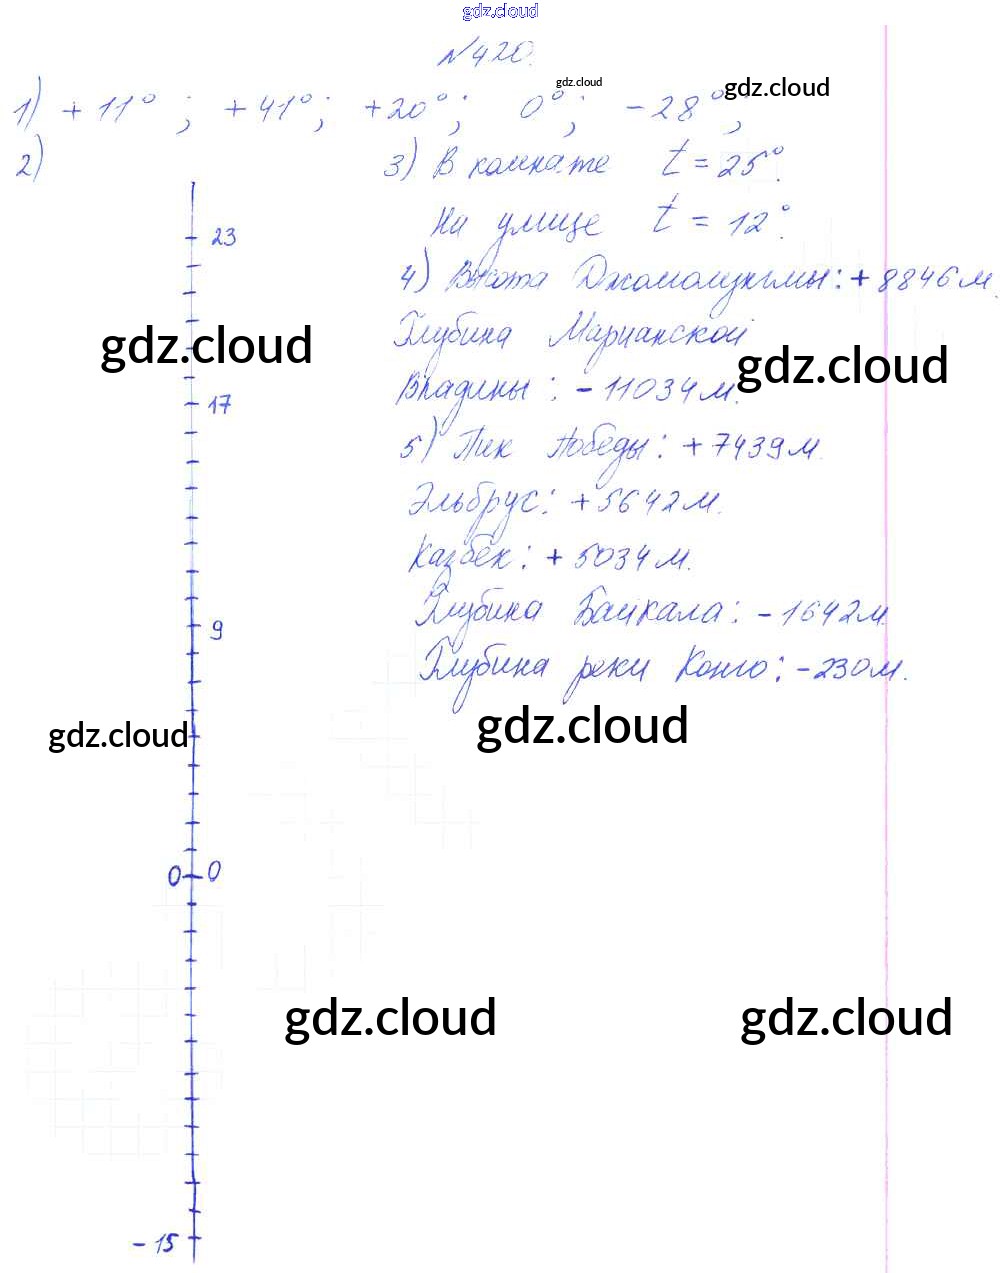 gdz.cloud
№420.
1) +11°; +41°; +20°; 0°; -28°;
gdz.cloud
gdz.cloud
2)
3) В комнате t = 25°.
На улице t = 12°.
4) Высота Джомолунгмы: +8846м.
Глубина Марианской
Впадины: -11034м.
5) Пик Победы: +7439м.
Эльбрус: +5642м.
Казбек: +5034м.
Глубина Байкала: -1642м.
Глубина реки Конго: -230м.
23
gdz.cloud
gdz.cloud
17
9
gdz.cloud
gdz.cloud
0 0
gdz.cloud
gdz.cloud
-15